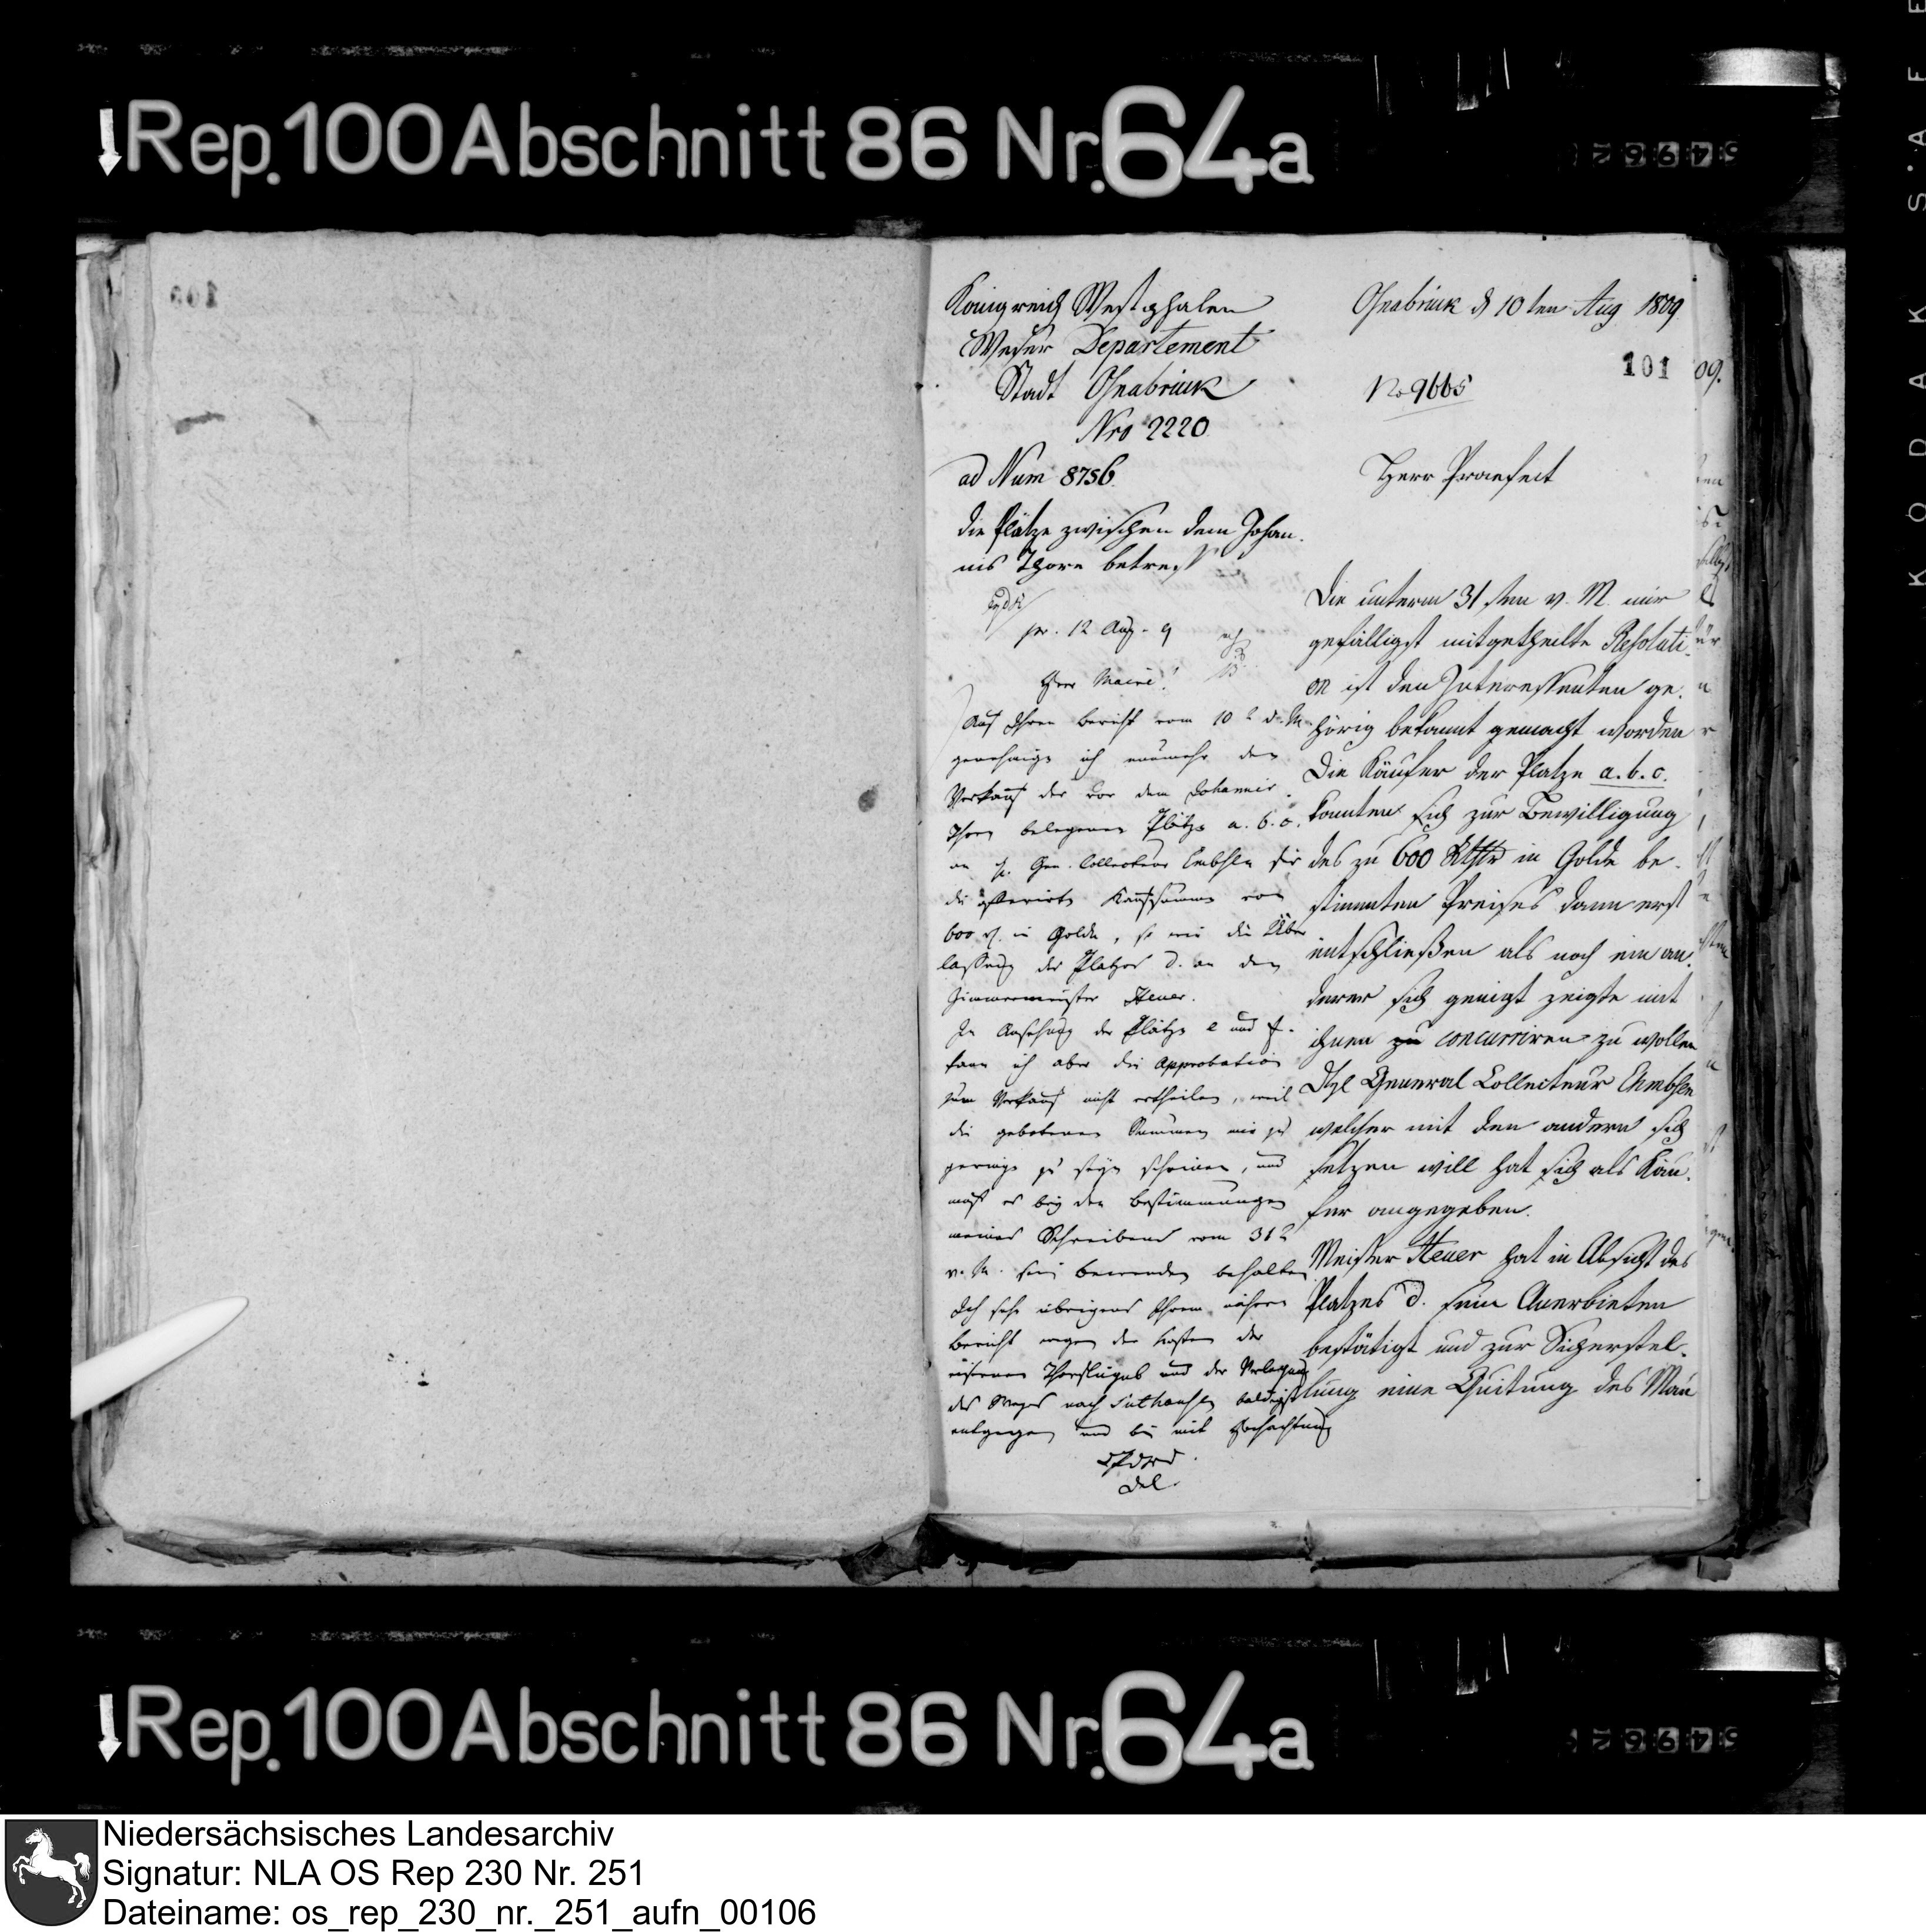 Rep. 100 Abschnitt 86 Nr. 64a
Königreich Westphalen
Weser Departement
Stadt Osnabrück
Nro 2220
ad Num 8756.
die Plätze zwischen dem Johan-
nis Thore betreff
pr. 12 Aug. 9
Herr Maire!
Auf Ihren Bericht vom 10 d. M.
genehmige ich nunmehr den
Verkauf der vor dem Johannis
Thore belegenen Plätze a. b. c.
an H. Gen. Collecteur Embsen für
die offerirte Kaufsumme von
600 rt. in Golde, so wie die Über
lassung des Platzes d. an den
Zimmermeister Heuer.
In Ansehung der Plätze e und f.
kann ich aber die Approbation
zum Verkauf nicht ertheilen, weil
die gebotenen Summen mir zu
geringe zu seyn scheinen, und
muß es bey den Bestimmungen
meines Schreibens vom 31
v. M. sein bewenden behalten
Ich sehe übrigens Ihrem nähern
Bericht wegen der Kosten des
eisernen Thorflügels und der Verlegung
des Weges nach Suthausen baldigst
entgegen und bin mit Hochachtung
Osnabrück d 10ten Aug 1809
101
09.
No 9665
Herr Praefect
Die unterm 31sten v. M. mir
gefälligst mitgetheilte Resoluti-
on ist den Interessenten ge-
hörig bekannt gemacht worden
Die Käufer der Platze a. b. c.
konnten sich zur Bewilligung
des zu 600 Rthlr in Golde be-
stimmten Preises dann erst
entschließen als noch ein an-
derer sich geneigt zeigte mit
ihnen zu concurriren zu wollen
General Collecteur Ehmbsen
welcher mit den andern sich
setzen will hat sich als Käu-
fer angegeben.
Meister Heuer hat in Absicht des
Platzes d. sein Anerbieten
bestätigt und zur Sicherstel-
lung eine Quitung des Mau
Rep. 100 Abschnitt 86 Nr. 64a
KODAK SAFE
Niedersächsisches Landesarchiv
Signatur: NLA OS Rep 230 Nr. 251
Dateiname: os_rep_230_nr._251_aufn_00106